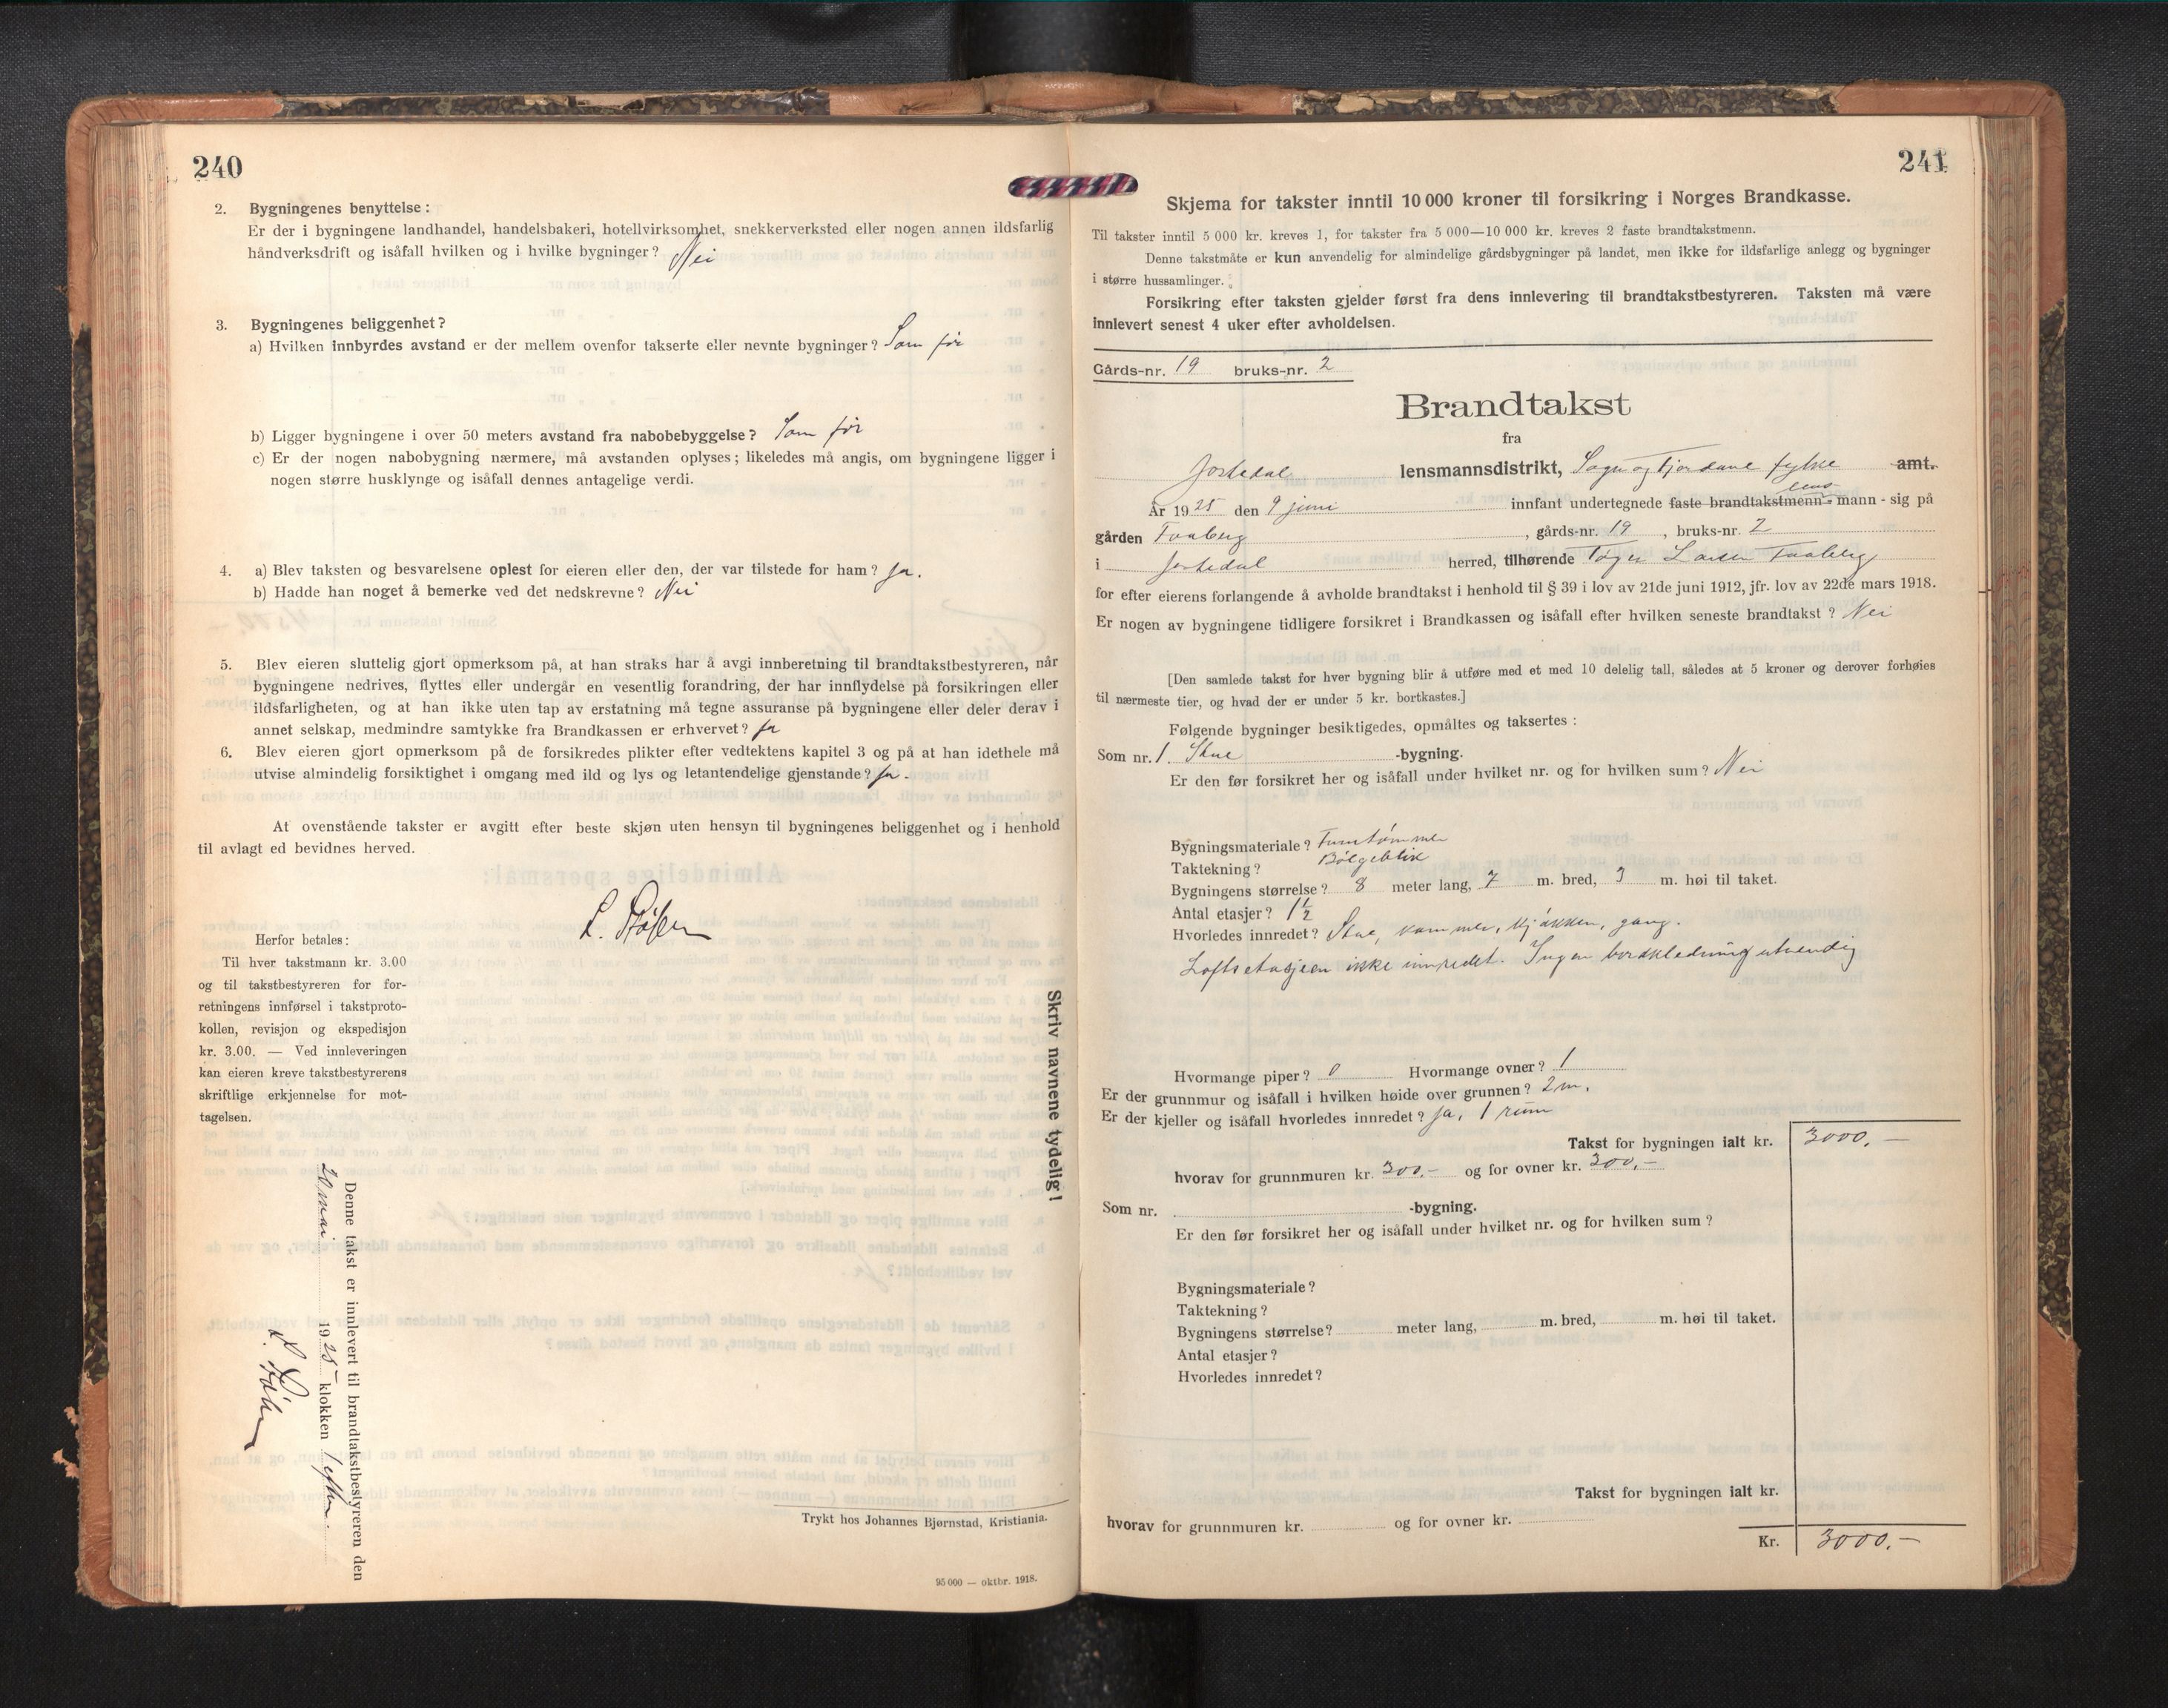 240
2. Bygningenes benyttelse:
Er der i bygningene landhandel, handelsbakeri, hotellvirksomhet, snekkerverksted eller nogen annen ildsfarlig
håndverksdrift og isåfall hvilken og i hvilke bygninger? Nei
3. Bygningenes beliggenhet?
a) Hvilken innbyrdes avstand er der mellem ovenfor takserte eller nevnte bygninger? Som før
b) Ligger bygningene i over 50 meters avstand fra nabobebyggelse? Som før
c) Er der nogen nabobygning nærmere, må avstanden oplyses; likeledes må angis, om bygningene ligger i
nogen større husklynge og isåfall dennes antagelige verdi.
4. a) Blev taksten og besvarelsene oplest for eieren eller den, der var tilstede for ham? Ja.
b) Hadde han noget å bemerke ved det nedskrevne? Nei
5. Blev eieren sluttelig gjort opmerksom på, at han straks har å avgi innberetning til brandtakstbestyreren, når
bygningene nedrives, flyttes eller undergår en vesentlig forandring, der har innflydelse på forsikringen eller
ildsfarligheten, og at han ikke uten tap av erstatning må tegne assuranse på bygningene eller deler derav i
annet selskap, medmindre samtykke fra Brandkassen er erhvervet? Ja
6. Blev eieren gjort opmerksom på de forsikredes plikter efter vedtektens kapitel 3 og på at han idethele må
utvise almindelig forsiktighet i omgang med ild og lys og letantendelige gjenstande? Ja.
At ovenstående takster er avgitt efter beste skjøn uten hensyn til bygningenes beliggenhet og i henhold
til avlagt ed bevidnes herved.
Herfor betales:
Til hver takstmann kr. 3.00
og til takstbestyreren for for-
retningens innførsel i takstproto-
kollen, revisjon og ekspedisjon
kr. 3.00. — Ved innleveringen
kan eieren kreve takstbestyrerens
skriftlige erkjennelse for mot-
tagelsen.
Skriv navnene tydelig!
Denne takst er innlevert til brandtakstbestyreren den
20 mai 1925 klokken 1 efterm.
Trykt hos Johannes Bjørnstad, Kristiania.
95 000 — oktbr. 1918.
241
Skjema for takster inntil 10 000 kroner til forsikring i Norges Brandkasse.
Til takster inntil 5 000 kr. kreves 1, for takster fra 5 000—10 000 kr. kreves 2 faste brandtakstmenn.
Denne takstmåte er kun anvendelig for almindelige gårdsbygninger på landet, men ikke for ildsfarlige anlegg og bygninger
i større hussamlinger.
Forsikring efter taksten gjelder først fra dens innlevering til brandtakstbestyreren. Taksten må være
innlevert senest 4 uker efter avholdelsen.
Gårds-nr. 19 bruks-nr. 2
Brandtakst
fra
Jostedal lensmannsdistrikt, Sogn og Fjordane fylke amt.
År 1925 den 9 juni innfant undertegnede faste brandtakstmenn - lens mann - sig på
gården Faaberg, gårds-nr. 19, bruks-nr. 2
i Jostedal herred, tilhørende Tøger Larsen Faaberg
for efter eierens forlangende å avholde brandtakst i henhold til § 39 i lov av 21de juni 1912, jfr. lov av 22de mars 1918.
Er nogen av bygningene tidligere forsikret i Brandkassen og isåfall efter hvilken seneste brandtakst? Nei
[Den samlede takst for hver bygning blir å utføre med et med 10 delelig tall, således at 5 kroner og derover forhøies
til nærmeste tier, og hvad der er under 5 kr. bortkastes.]
Følgende bygninger besiktigedes, opmåltes og taksertes:
Som nr. 1 Stue -bygning.
Er den før forsikret her og isåfall under hvilket nr. og for hvilken sum? Nei
Bygningsmateriale? Furutømmer
Taktekning? Bølgeblik
Bygningens størrelse? 8 meter lang, 7 m. bred, 3 m. høi til taket.
Antal etasjer? 1 1/2
Hvorledes innredet? Stue, kammer, kjøkken, gang.
Loftsetasjen ikke innredet. Ingen bordkledning utvendig
Hvormange piper? 0 Hvormange ovner? 1
Er der grunnmur og isåfall i hvilken høide over grunnen? 2 m.
Er der kjeller og isåfall hvorledes innredet? Ja, 1 rum
Takst for bygningen ialt kr. 3000,—
hvorav for grunnmuren kr. 300.— og for ovner kr. 300,—
Som nr. -bygning.
Er den før forsikret her og isåfall under hvilket nr. og for hvilken sum?
Bygningsmateriale?
Taktekning?
Bygningens størrelse? meter lang, m. bred, m. høi til taket.
Antal etasjer?
Hvorledes innredet?
Takst for bygningen ialt kr.
hvorav for grunnmuren kr. og for ovner kr.
Kr. 3000.—